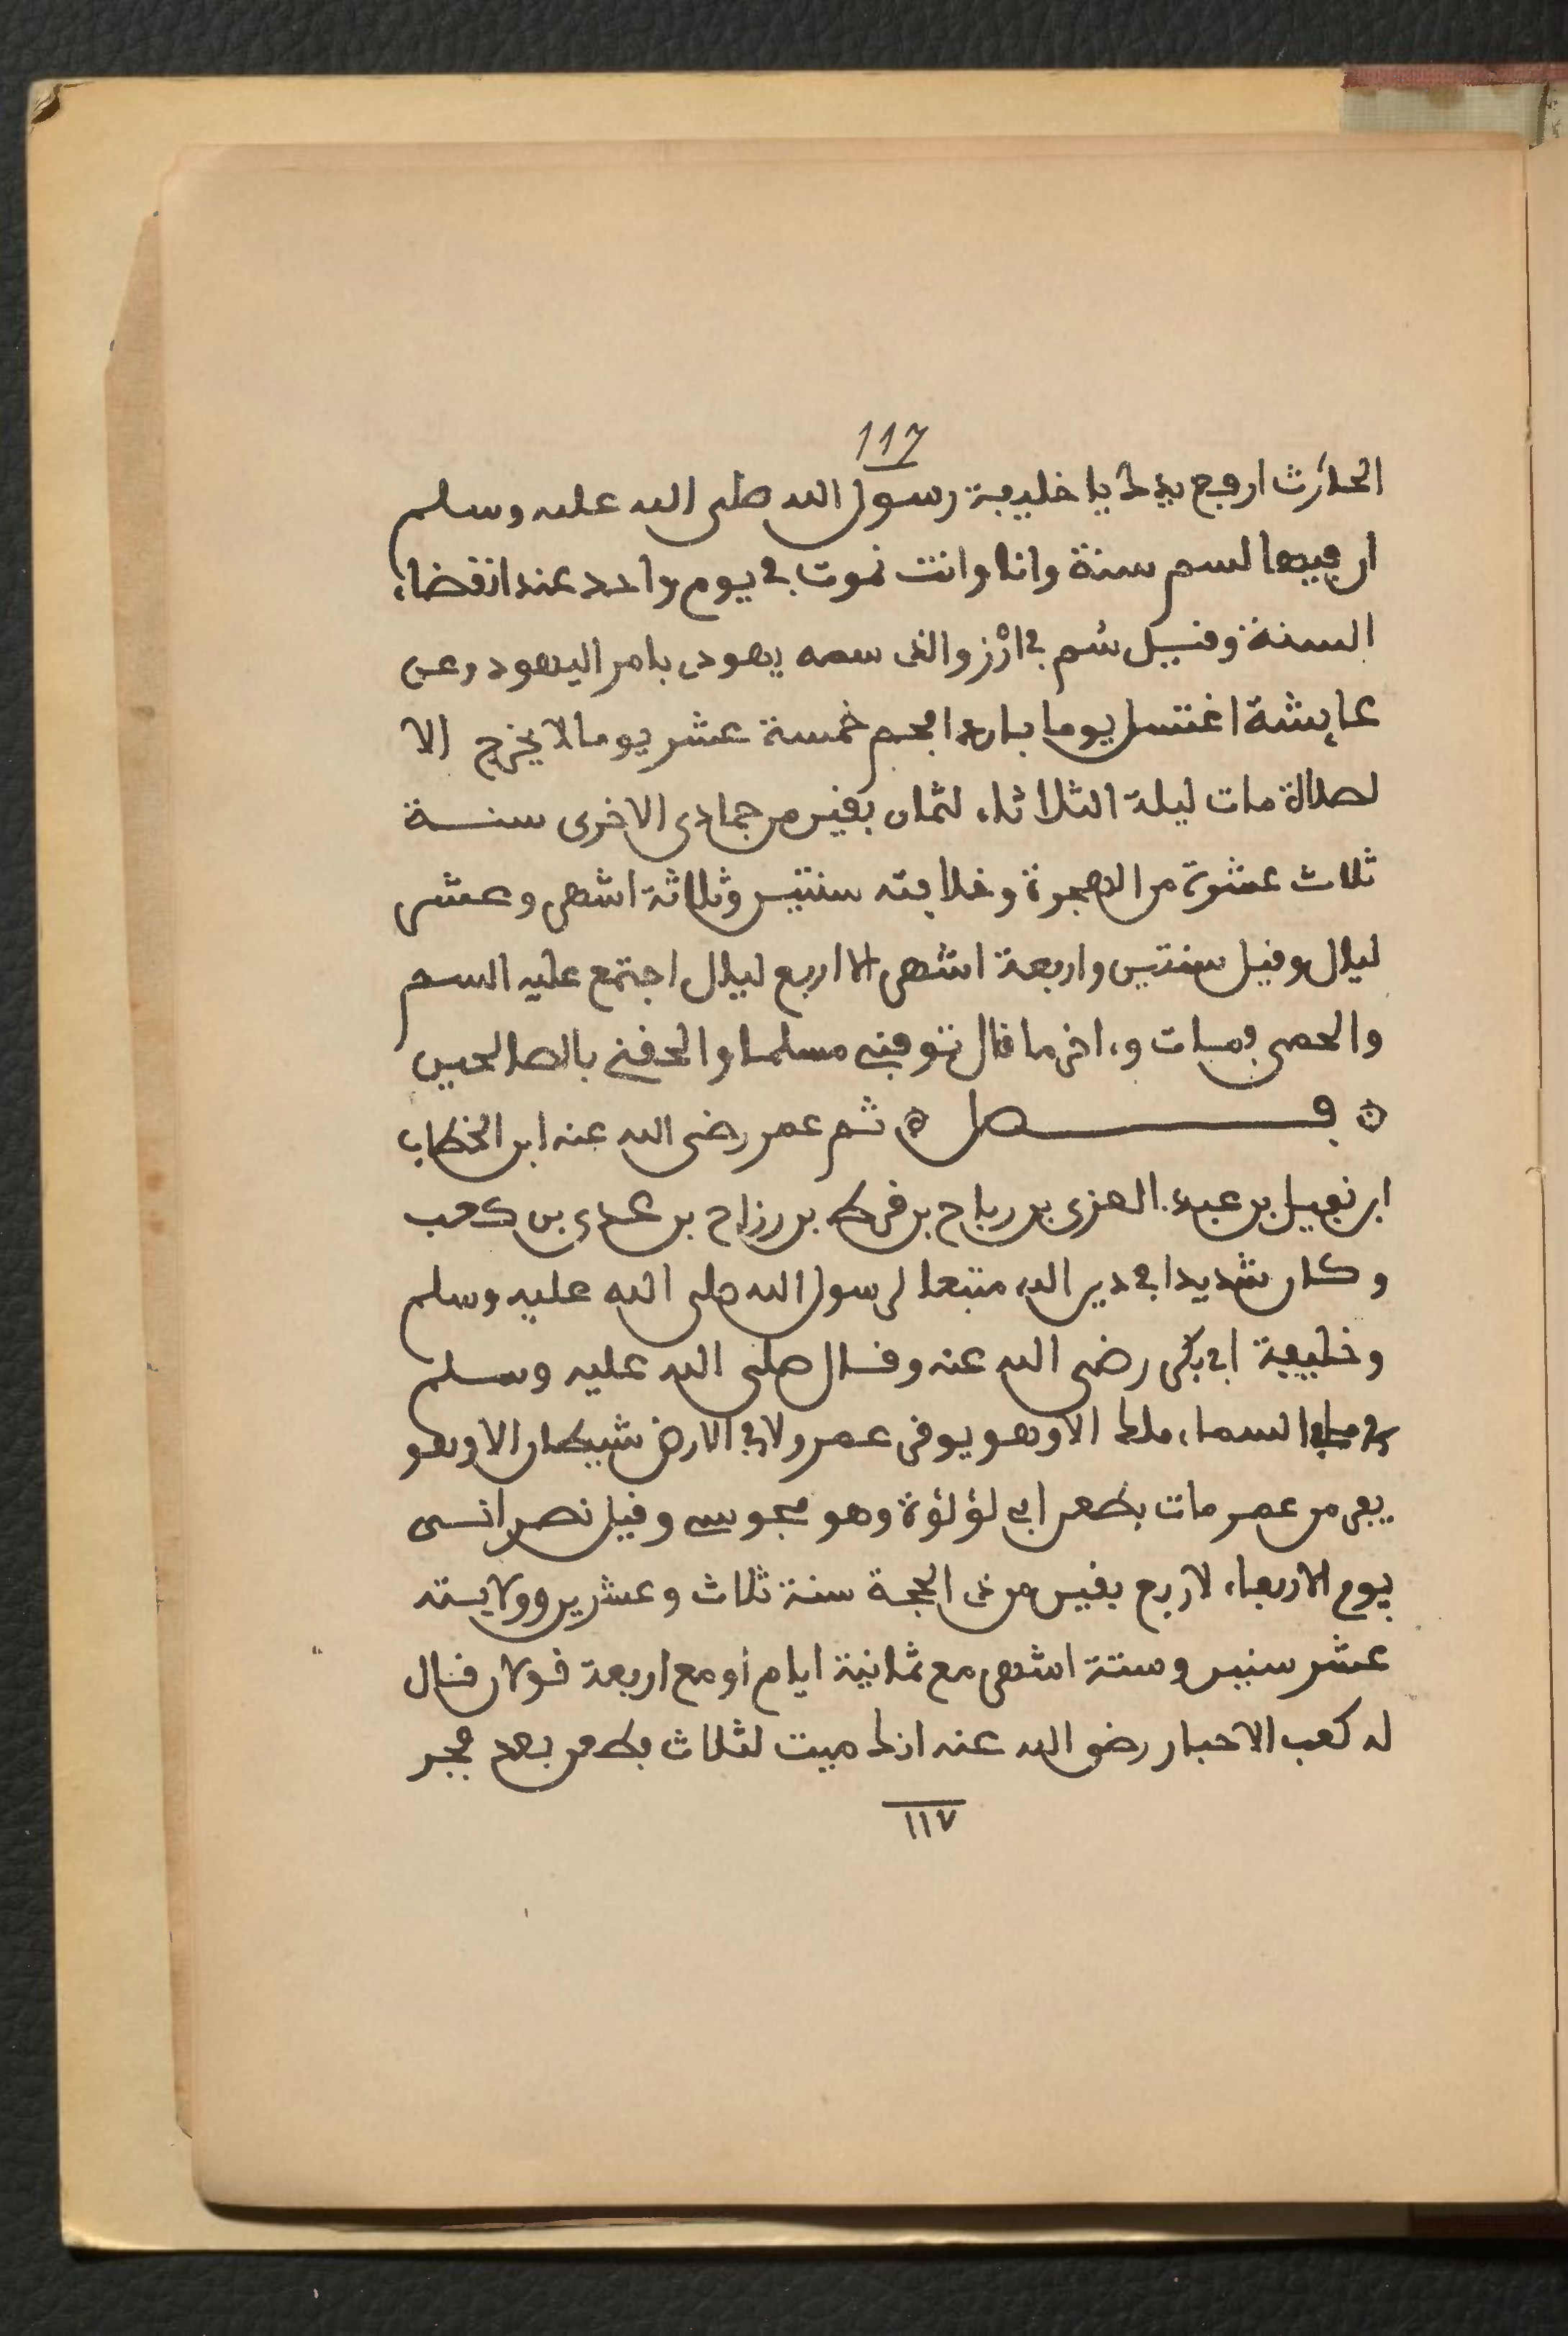 117
الحارث ارفع يدك يا خليفة رسول الله صلى الله عليه وسلم
ان فيها لسم سنة وانا وانت نموت في يوم واحد عند انقضاء
السنة وقيل سُم في ارُز والذى سمه يهودى بامر اليهود وعن
عايشة اغتسل يوما باردا فحم خمسة عشر يوما لا يخرج الا
لصلاة مات ليلة الثلاثاء لثمان بقين من جمادى الاخرى سنة
ثلاث عشرة من الهجرة وخلافته سنتين وثلاثة اشهر وعشر
ليال وقيل سنتين واربعة اشهر الا اربع ليال اجتمع عليه السم
والحمى فمات وءاخر ما قال توفني مسلما والحقني بالصالحين
فصل ثم عمر رضى الله عنه ابن الخطاب
ابن نفيل بن عبد العزى بن رياح بن قرط بن رزاح بن عدى بن كعب
وكان شديدا في دين الله متبعا لرسول الله صلى الله عليه وسلم
وخليفة ابي بكر رضى الله عنه وقال صلى الله عليه وسلم
السماء ملك الا وهو يوقر عمر ولا في الارض شيطان الا وهو
يفر من عمر مات بطعن ابي لؤلؤة وهو مجوسي وقيل نصرانى
يوم الاربعاء لاربع بقين من ذى الحجة سنة ثلاث وعشرين وولايته
عشر سنين وستة اشهر مع ثمانية ايام او مع اربعة قولان قال
له كعب الاحبار رضى الله عنه انك ميت لثلاث فطعن بعد فجر
١١٧